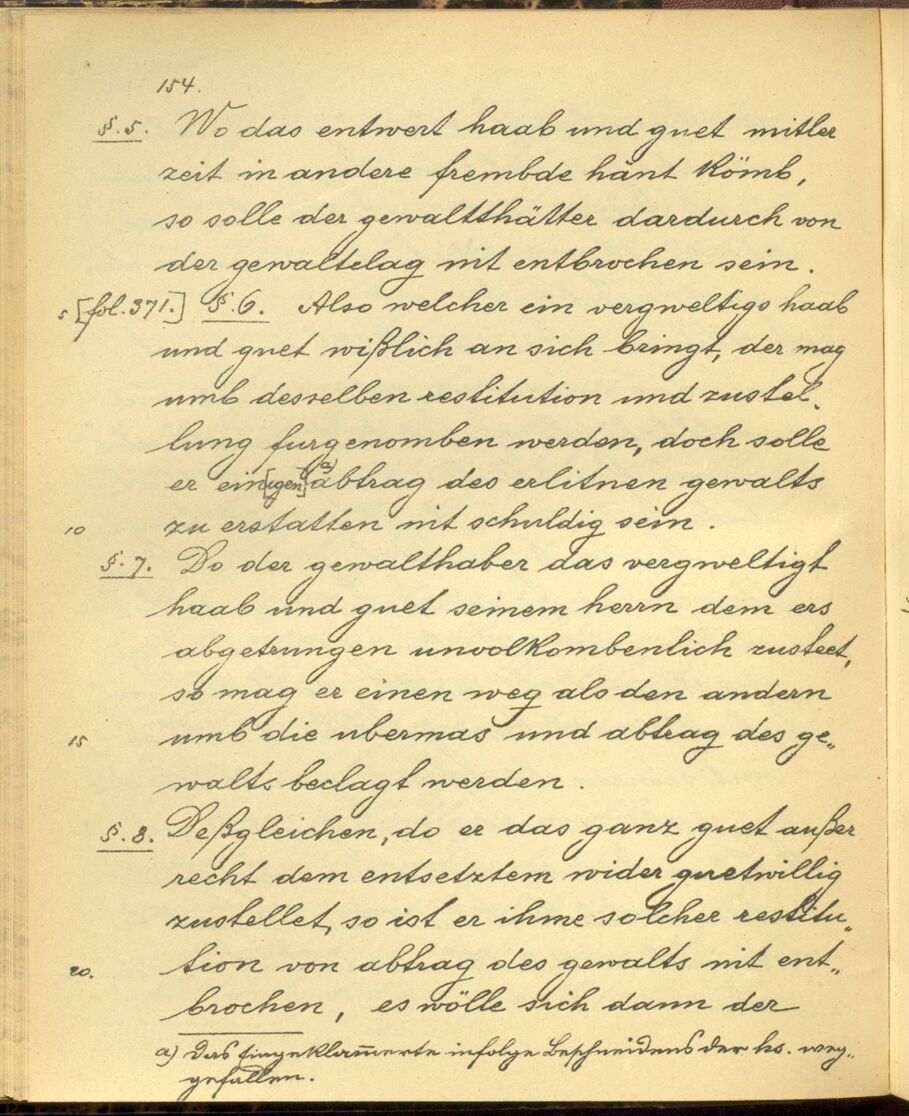 154.
§.5. Wo das entwert haab und guet mitler
zeit in andere frembde hänt kömb,
so solle der gewaltthätter dardurch von
der gewaltclag nit entbrochen sein.
5 [fol.371.] §.6. Also welcher ein vergweltigs haab
und guet wißlich an sich bringt, der mag
umb desselben restitution und zustel„
lung furgenomben werden, doch solle
er ein[igen] a) abtrag des erlitnen gewalts
10 zu erstatten nit schuldig sein.
§.7. Do der gewalthaber das vergweltigt
haab und guet seinem herrn dem ers
abgetrungen unvolkombenlich zusteet,
so mag er einen weg als den andern
15 umb die ubermas und abtrag des ge„
walts beclagt werden.
§.8. Deßgleichen, do er das ganz guet außer
recht dem entsetztem wider guetwillig
zustellet, so ist er ihme solcher restitu„
20. tion von abtrag des gewalts nit ent„
brochen, es wölle sich dann der
a) Das Eingeklam̅erte infolge Beschneidens der hs. weg„
gefallen.